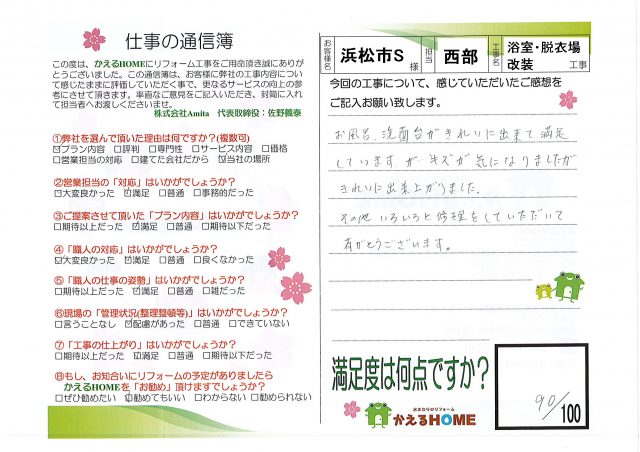 仕事の通信簿
この度は、かえるHOMEにリフォーム工事をご用命頂き誠にありが
とうございました。この通信簿は、お客様に弊社の工事内容につい
て感じたままに評価していただく事で、更なるサービスの向上の参
考にさせて頂きます。率直なご意見をご記入いただき、封筒に入れ
て担当者へお渡しくださいませ。
株式会社Amita 代表取締役：佐野義泰
①弊社を選んで頂いた理由は何ですか?(複数可)
☑プラン内容 □評判 □専門性 □サービス内容 □価格
□営業担当の対応 □建てた会社だから ☑当社の場所
②営業担当の「対応」はいかがでしょうか？
□大変良かった ☑満足 □普通 □事務的だった
③ご提案させて頂いた「プラン内容」はいかがでしょうか？
□期待以上だった ☑満足 □普通 □期待以下だった
④「職人の対応」はいかがでしょうか？
☑大変良かった □満足 □普通 □良くなかった
⑤「職人の仕事の姿勢」はいかがでしょうか？
□期待以上だった ☑満足 □普通 □雑だった
⑥現場の「管理状況(整理整頓等)」はいかがでしょうか？
□言うことなし ☑配慮があった □普通 □できていない
⑦「工事の仕上がり」はいかがでしょうか？
□期待以上だった ☑満足 □普通 □期待以下だった
⑧もし、お知合いにリフォームの予定がありましたら
かえるHOMEを「お勧め」頂けますでしょうか？
□ぜひ勧めたい ☑勧めてもいい □わからない □勧められない
お客様名 浜松市S 様 担当 西部 工事名 浴室・脱衣場改装 工事
今回の工事について、感じていただいたご感想を
ご記入お願い致します。
お風呂、洗面台がきれいに出来て満足
しています が キズが気になりましたが
きれいに出来上がりました。
その他いろいろと修理をしていただいて
ありがとうございます。
満足度は何点ですか？
90/100
おまかせのリフォーム
かえるHOME